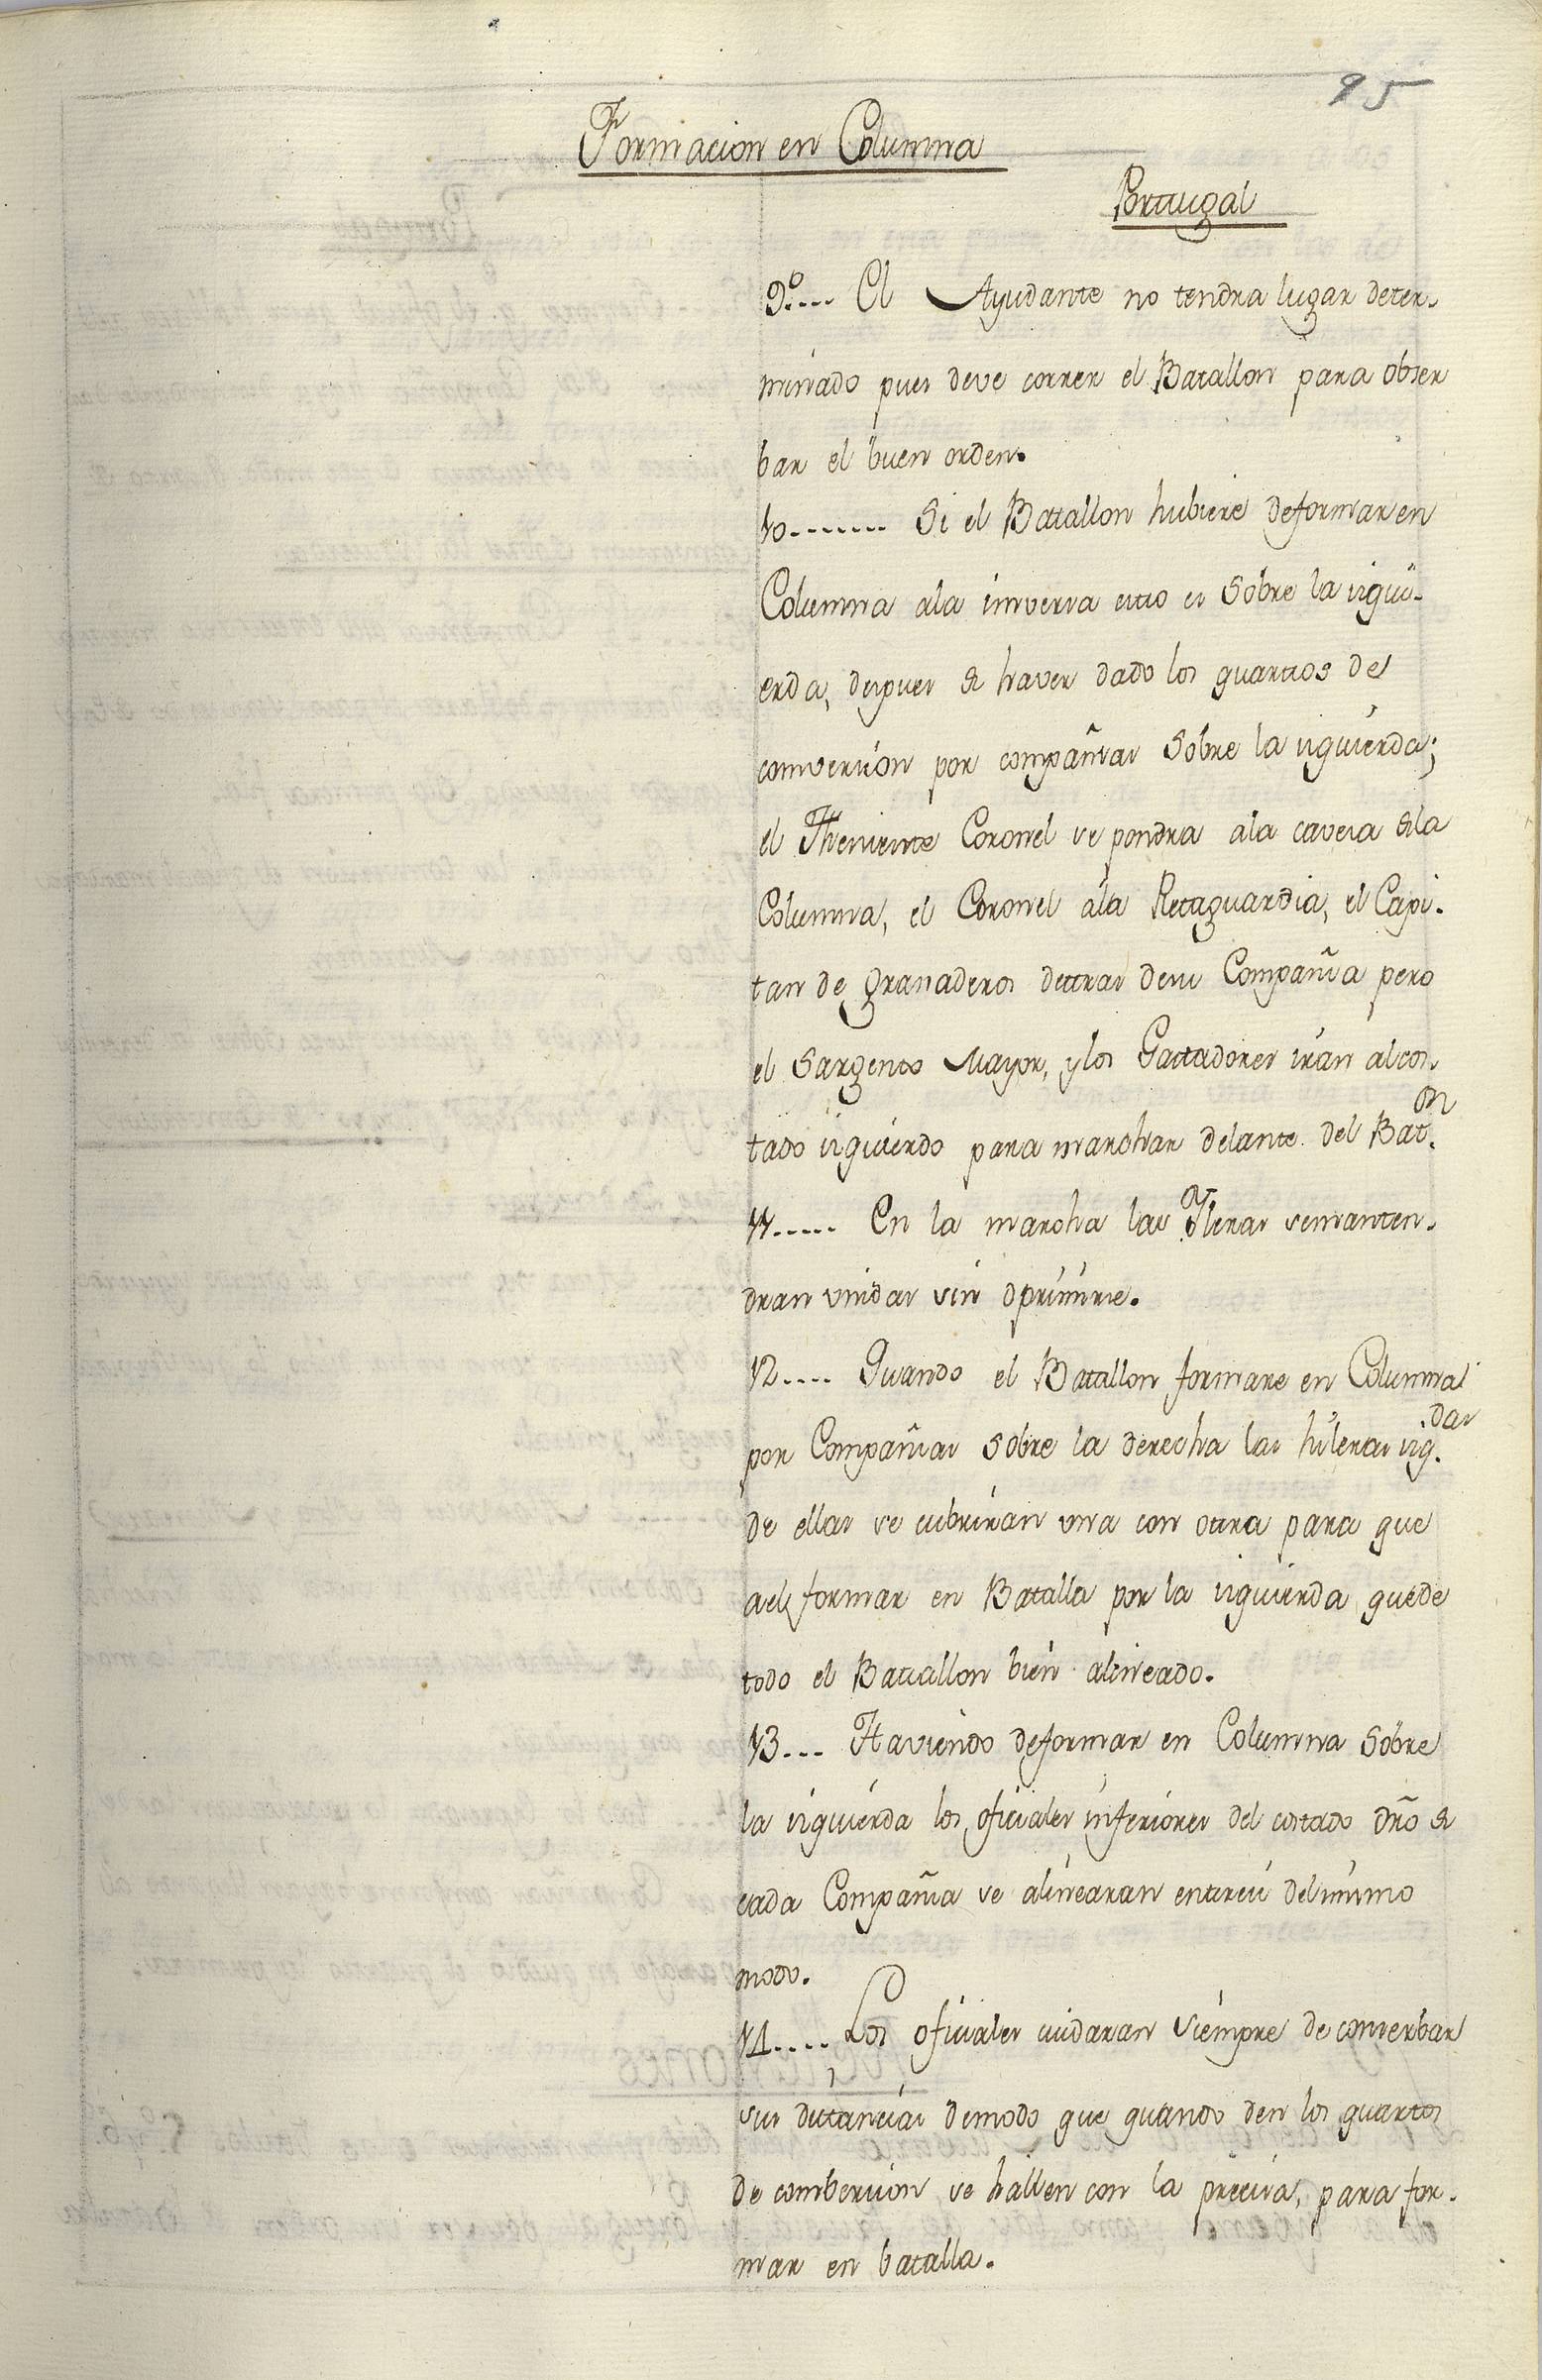 95
Formacion en Columna
Portugal
9.º.... El Ayudante no tendra lugar deter-
minado pues deve correr el Batallon para obser
bar el buen orden.
10........ Si el Batallon hubiere deformar en
Columna ala inversa esto es sobre la izqui-
erda, despues de haver dado los quartos de
conversion por compañias sobre la izquierda;
el Theniente Coronel se pondra ala cavesa dela
Columna, el Coronel ala Retaguardia, el Capi-
tan de Granaderos detras desu Compañia pero
el Sargento Mayor, y los Gastadores iran alcos-
tado izquierdo para marchar delante del Bat.on
11..... En la marcha las Ileras semanten-
dran unidas sin oprimirse.
12.... Quando el Batallon formare en Columna
por Compañias sobre la derecha las hileras izq.das
de ellas se cubriran una con otra para que
ael formar en Batalla por la izquierda quede
todo el Batallon bien alineado.
13.... Haviendo deformar en Columna sobre
la izquierda los oficiales inferiores del costado dr̃o de
cada Compañia se alinearan entresi delmismo
modo.
14..... Los oficiales cuidaran siempre de conserbar
sus distancias demodo que quando den los quartos
de combersion se hallen con la precisa, para for-
mar en batalla.